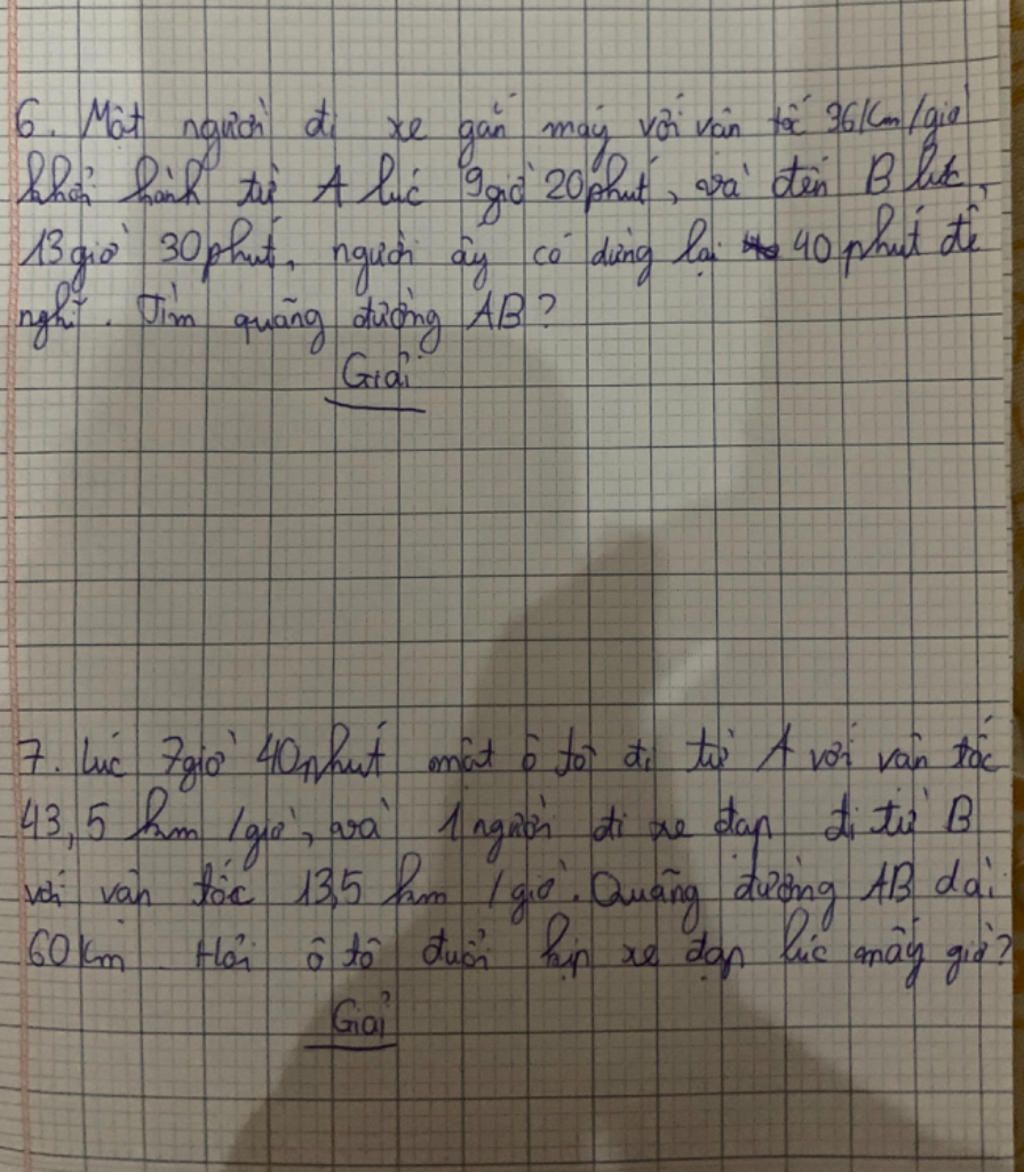 6. Một người đi xe gắn máy với vận tốc 36 Km/giờ
khởi hành từ A lúc 9giờ 20phút, và đến B lúc
13giờ 30phút, người ấy có dừng lại 40 phút để
nghỉ. Tìm quãng đường AB?
Giải
7. Lúc 7giờ 40phút một ô tô đi từ A với vận tốc
43,5 km/giờ, và 1 người đi xe đạp đi từ B
với vận tốc 13,5 km/giờ. Quãng đường AB dài
60Km. Hỏi ô tô đuổi kịp xe đạp lúc mấy giờ?
Giải